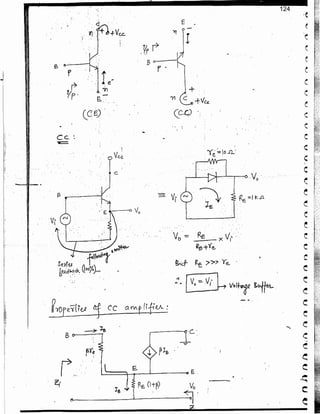 124
C
n
+Vcc
B
P
i/p
e-
n
E
(CE)
E
n
i/p
B
P
n C
+Vcc
(CC)
CC :
Vcc
C
B
E
Vo
Vi
Series feedback (100%)
following emitter
re = 10 Ω
Vi
IE
Vo
RE = 1KΩ
Vo = RE / RE + re × Vi
But RE >>> re
∴ Vo = Vi → Voltage Buffer
Properties of CC amplifier :
B
IB
C
βre
βIB
E
E
Zi
IB
RE (1+β)
Vo